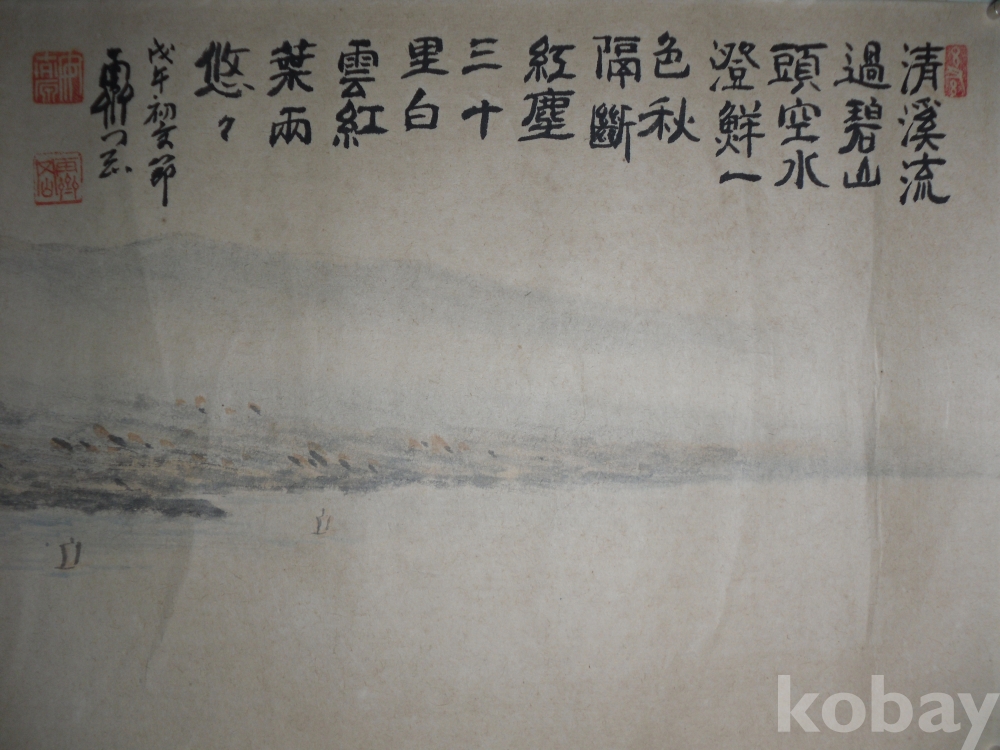 清溪流
過碧山
頭空水
澄鮮一
色秋
隔斷
紅塵
三十
里白
雲紅
葉兩
悠々
戊午初夏節
kobay